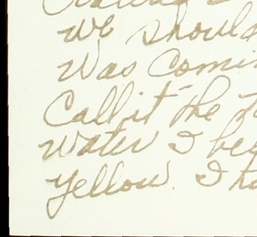 we should
was comin
Call it the
water I be
yellow. I ha